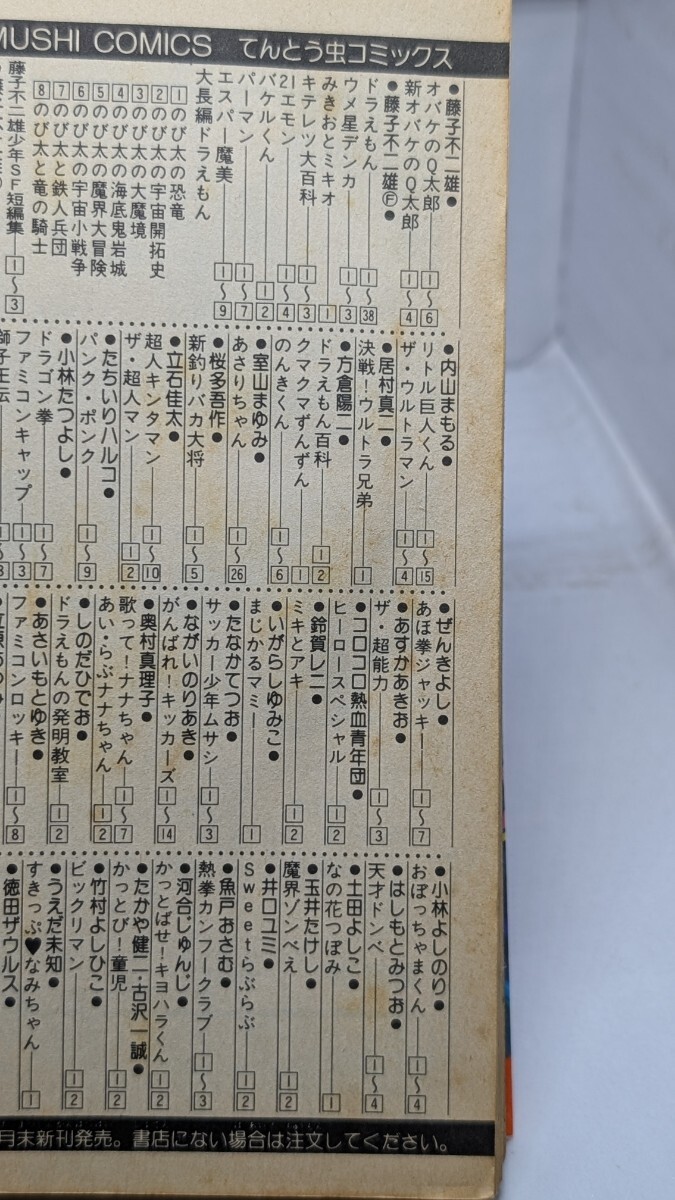 MUSHI COMICS てんとう虫コミックス
●藤子不二雄●
オバケのQ太郎 1〜6
新オバケのQ太郎 1〜4
●藤子不二雄Ⓕ●
ドラえもん 1〜38
ウメ星デンカ 1〜3
みきおとミキオ 1
キテレツ大百科 1〜3
21エモン 1〜4
バケルくん 1 2
パーマン 1〜7
エスパー魔美 1〜9
大長編ドラえもん
1のび太の恐竜
2のび太の宇宙開拓史
3のび太の大魔境
4のび太の海底鬼岩城
5のび太の魔界大冒険
6のび太の宇宙小戦争
7のび太と鉄人兵団
8のび太と竜の騎士
藤子不二雄少年SF短編集 1〜3
●内山まもる●
リトル巨人くん 1〜15
ザ・ウルトラマン 1〜4
●居村真二●
決戦!ウルトラ兄弟 1
●方倉陽二●
ドラえもん百科 1 2
クマクマずんずん 1
のんきくん 1〜6
●室山まゆみ●
あさりちゃん 1〜26
●桜多吾作●
新釣りバカ大将 1〜5
●立石佳太●
超人キンタマン 1〜10
ザ・超人マン 1 2
●たちいりハルコ●
パンク・ポンク 1〜9
●小林たつよし●
ドラゴン拳 1〜7
ファミコンキャップ 1〜3
獅子王伝
●ぜんきよし●
あほ拳ジャッキー 1〜7
●あすかあきお●
ザ・超能力 1〜3
●コロコロ熱血青年団●
ヒーロースペシャル 1 2
●鈴賀レニ●
ミキとアキ 1 2
●いがらしゆみこ●
まじかるマミー 1
●たなかてつお●
サッカー少年ムサシ 1〜3
●ながいのりあき●
がんばれ!キッカーズ 1〜14
●奥村真理子●
歌って!ナナちゃん 1〜7
あい・らぶナナちゃん 1 2
●しのだひでお●
ドラえもんの発明教室 1 2
●あさいもとゆき●
ファミコンロッキー 1〜8
●小林よしのり●
おぼっちゃまくん 1〜4
●はしもとみつお●
天才ドンベ 1〜4
●土田よしこ●
なの花つぼみ 1
●玉井たけし●
魔界ゾンべえ 1 2
●井口ユミ●
Sweetらぶらぶ 1 2
●魚戸おさむ●
熱拳カンフークラブ 1〜3
●河合じゅんじ●
かっとばせ!キヨハラくん 1 2
●たかや健二・古沢一誠●
かっとび!童児 1 2
●竹村よしひこ●
ビックリマン 1 2
●うえだ未知●
すきっぷ♥なみちゃん 1
●徳田ザウルス●
月末新刊発売。書店にない場合は注文してください。